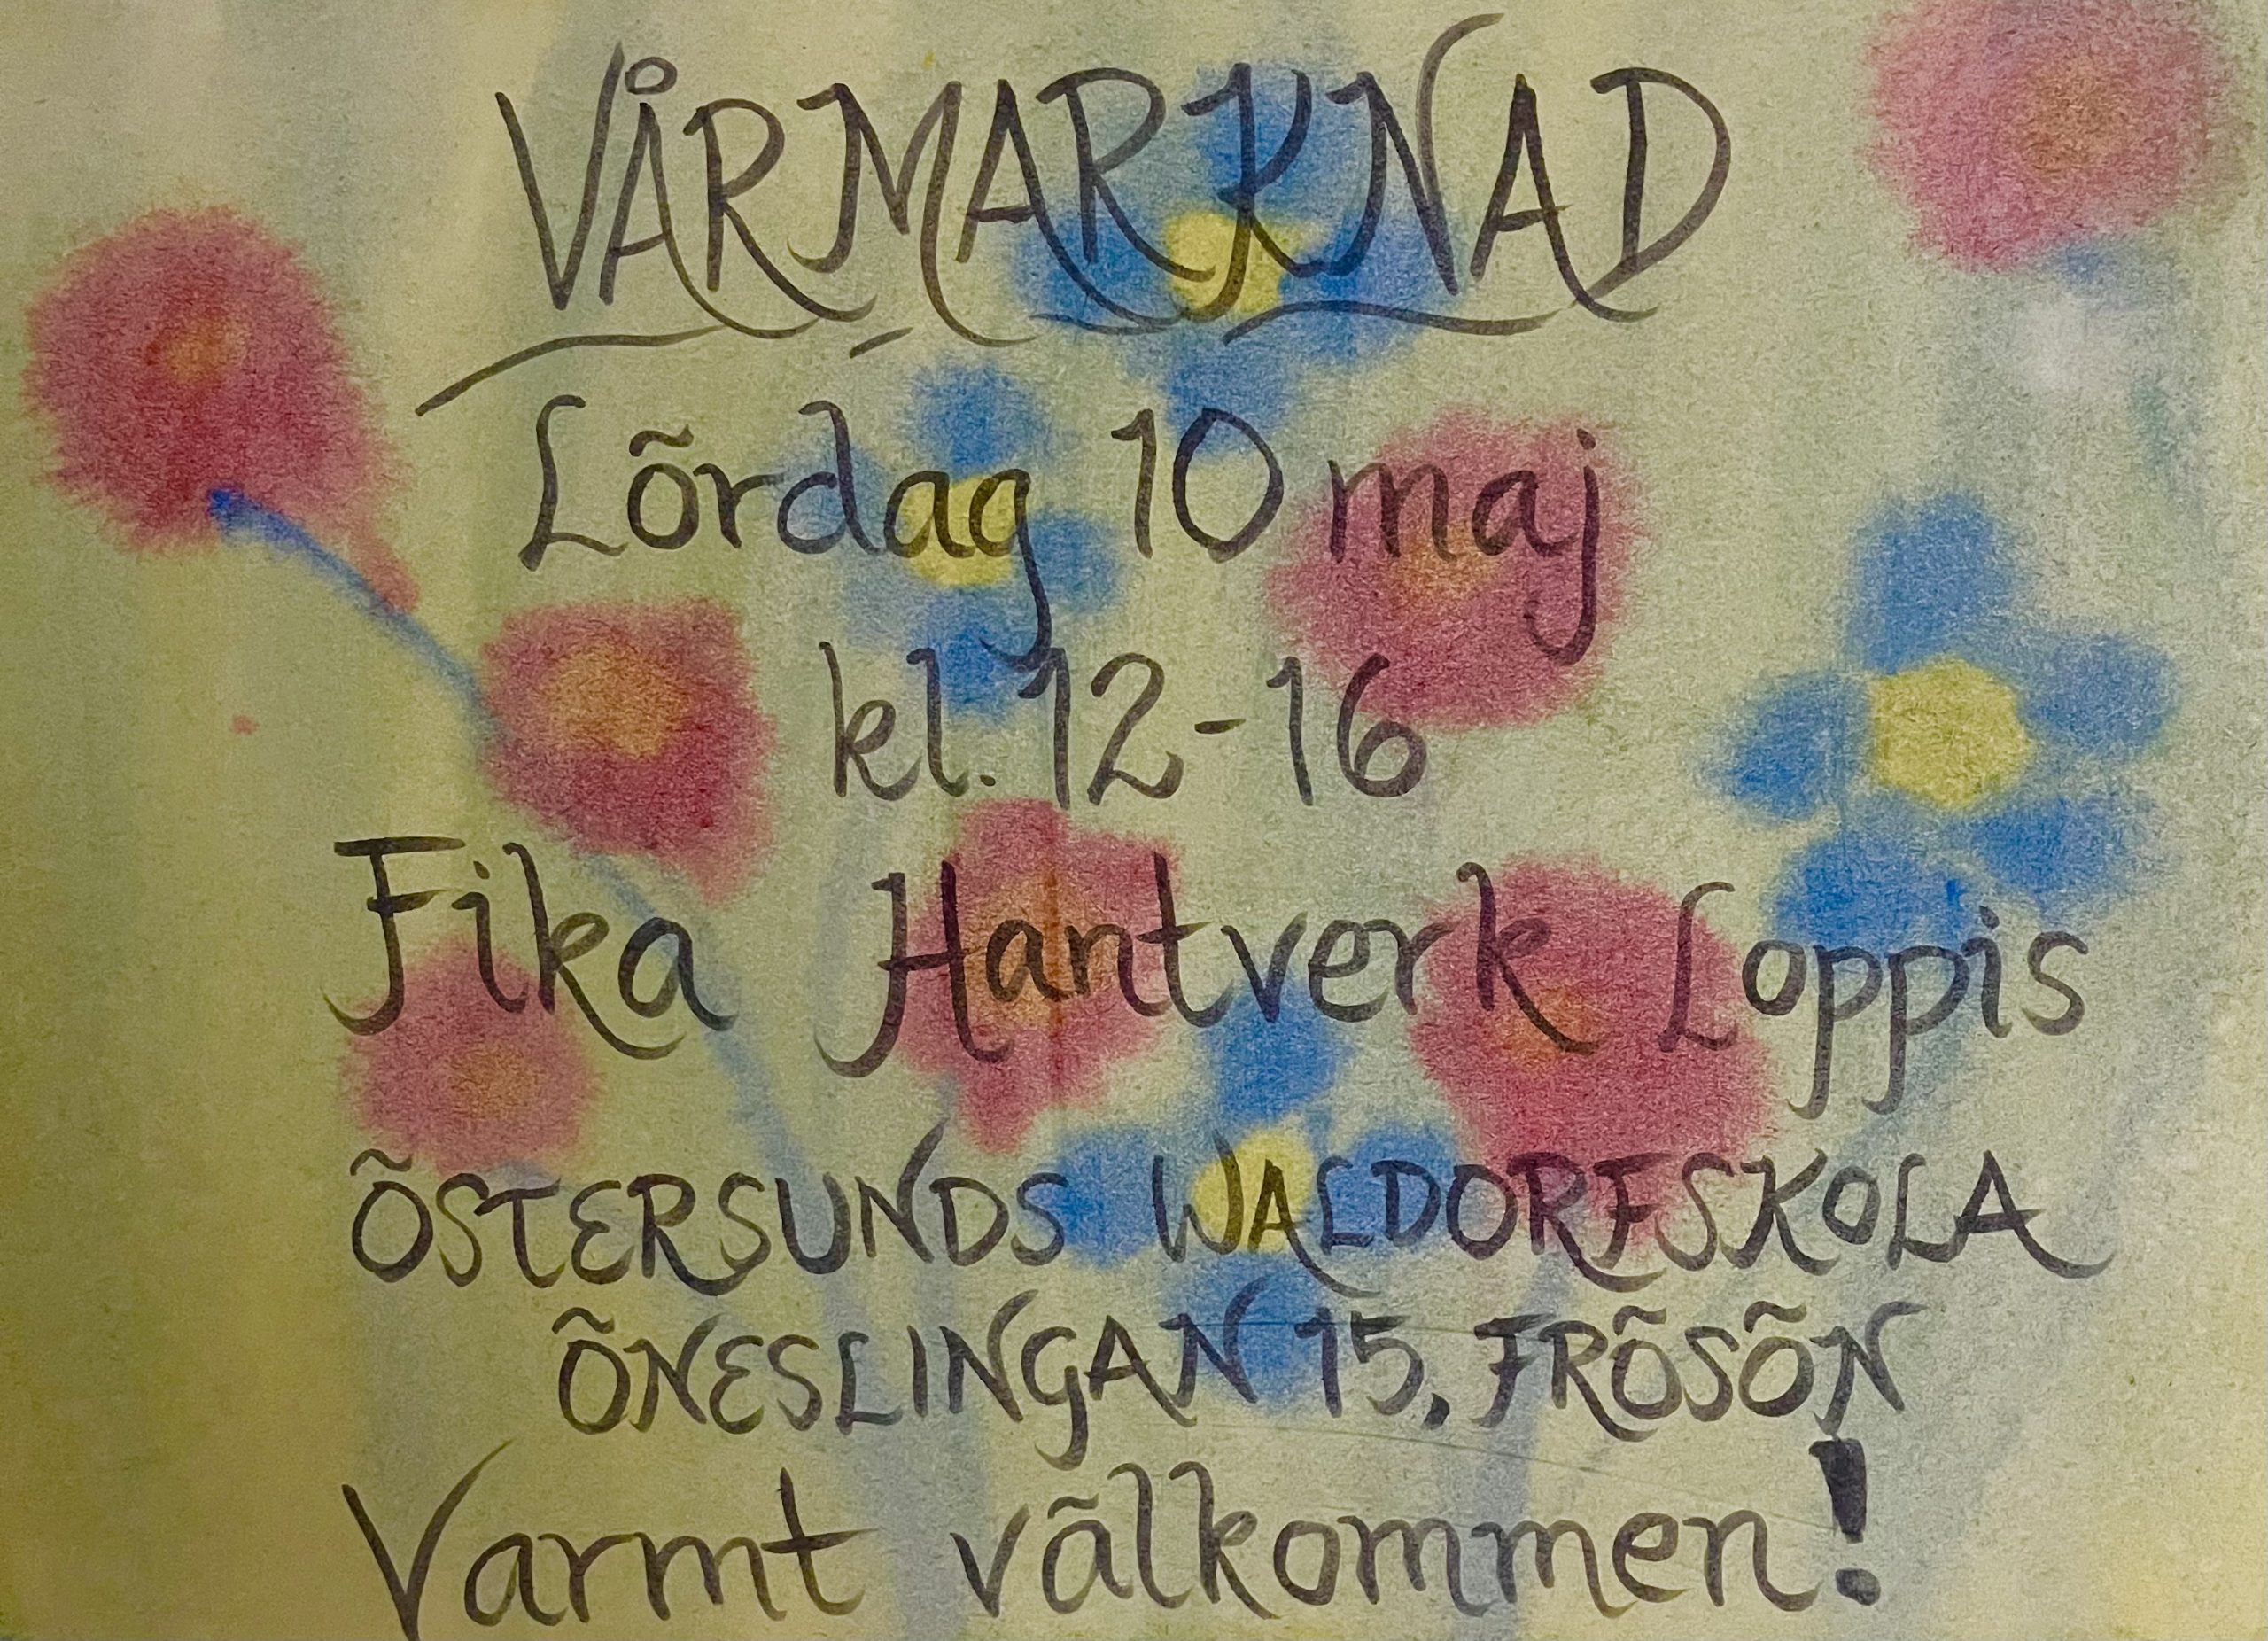 VÅRMARKNAD
Lördag 10 maj
kl. 12-16
Fika Hantverk Loppis
ÖSTERSUNDS WALDORFSKOLA
ÖNESLINGAN 15, FRÖSÖN
Varmt välkommen!